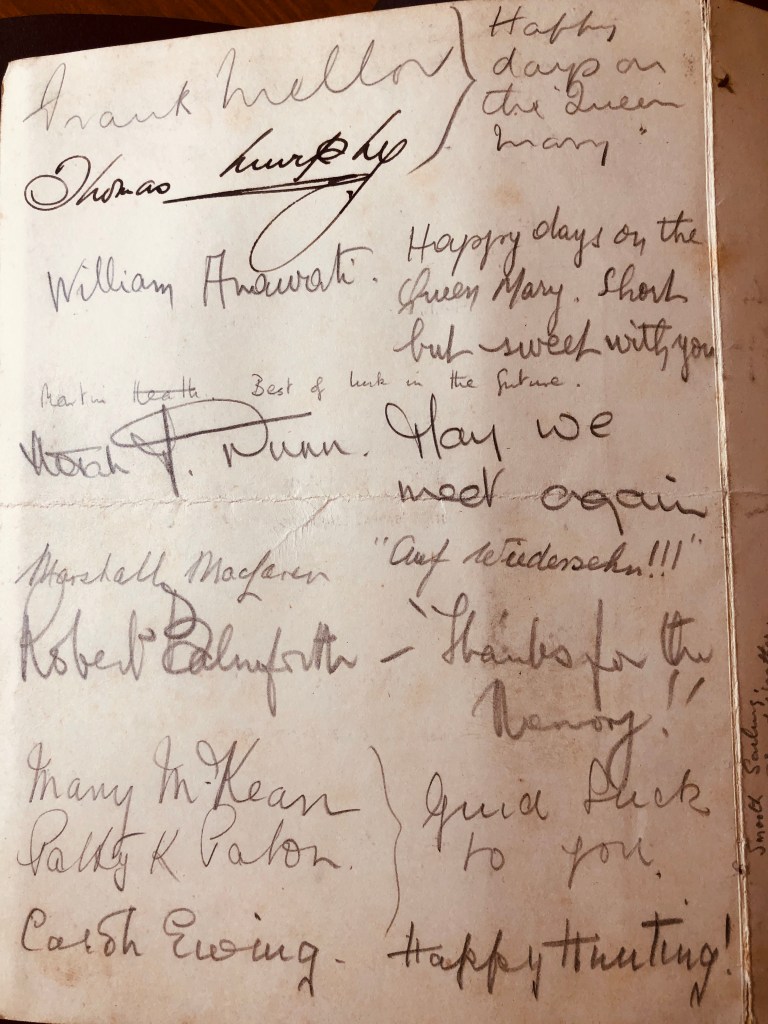 Frank Mellor
Happy
days on
the "Queen
Mary"
Thomas Murphy
William Anawati.
Happy days on the
Queen Mary. Short
but sweet with you
Martin Heath. Best of luck in the future.
Norah P. Dunn.
May we
meet again
Marshall MacLaren
"Auf Wiedersehn!!!"
Robert Balmforth –
"Thanks for the
Memory!!"
Mary McKean
Patty K Paton.
Guid Luck
to you.
Carol Ewing.
Happy Hunting!
Smooth Sailing,